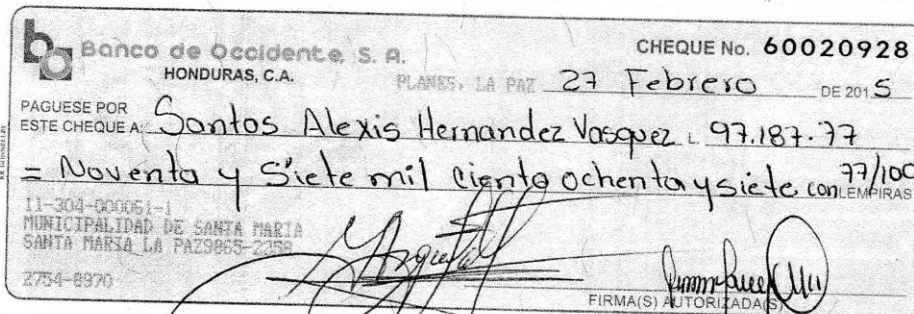 Banco de Occidente, S. A. CHEQUE No. 60020928
HONDURAS, C.A.
PLANES, LA PAZ 27 Febrero DE 2015
PAGUESE POR
ESTE CHEQUE A: Santos Alexis Hernandez Vasquez L. 97.187.77
= Noventa y Siete mil ciento ochenta y siete con 77/100 LEMPIRAS
11-304-000061-1
MUNICIPALIDAD DE SANTA MARIA
SANTA MARIA LA PAZ9865-2258
2754-8970
FIRMA(S) AUTORIZADA(S)